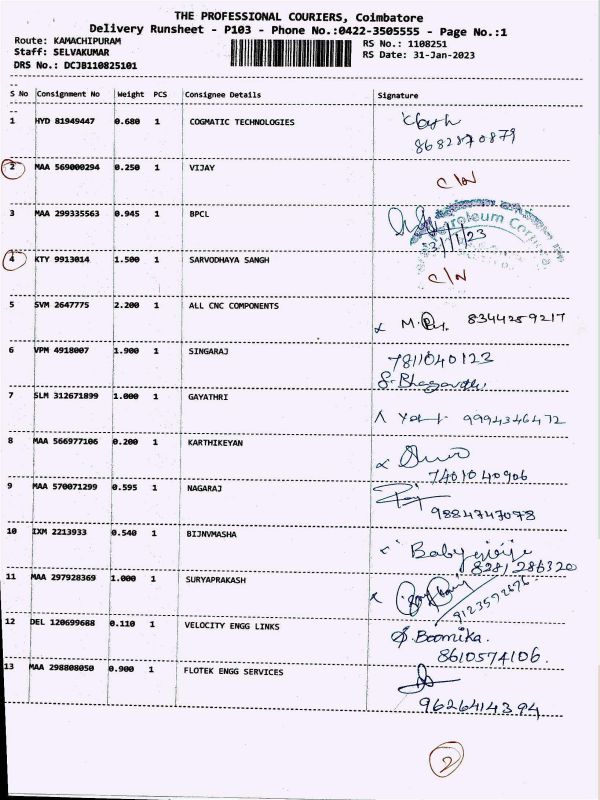 THE PROFESSIONAL COURIERS, Coimbatore
Delivery Runsheet - P103 - Phone No.:0422-3505555 - Page No.:1
Route: KAMACHIPURAM RS No.: 1108251
Staff: SELVAKUMAR RS Date: 31-Jan-2023
DRS No.: DCJB110825101
S No Consignment No Weight PCS Consignee Details Signature
1 HYD 81949447 0.680 1 COGMATIC TECHNOLOGIES
8682870879
2 MAA 569000294 0.250 1 VIJAY
C/N
3 MAA 299335563 0.945 1 BPCL
Petroleum Corpo
31/1/23
4 KTY 9913014 1.500 1 SARVODHAYA SANGH
C/N
5 SVM 2647775 2.200 1 ALL CNC COMPONENTS
8344259217
6 VPM 4918007 1.900 1 SINGARAJ
7811040123
7 SLM 312671899 1.000 1 GAYATHRI
9994346472
8 MAA 566977106 0.200 1 KARTHIKEYAN
7401040906
9 MAA 570071299 0.595 1 NAGARAJ
9884747078
10 IXM 2213933 0.540 1 BIJNVMASHA
Baby
8281286320
11 MAA 297928369 1.000 1 SURYAPRAKASH
9123592676
12 DEL 120699688 0.110 1 VELOCITY ENGG LINKS
S. Boomika.
8610574106.
13 MAA 298808050 0.900 1 FLOTEK ENGG SERVICES
9626414394
2